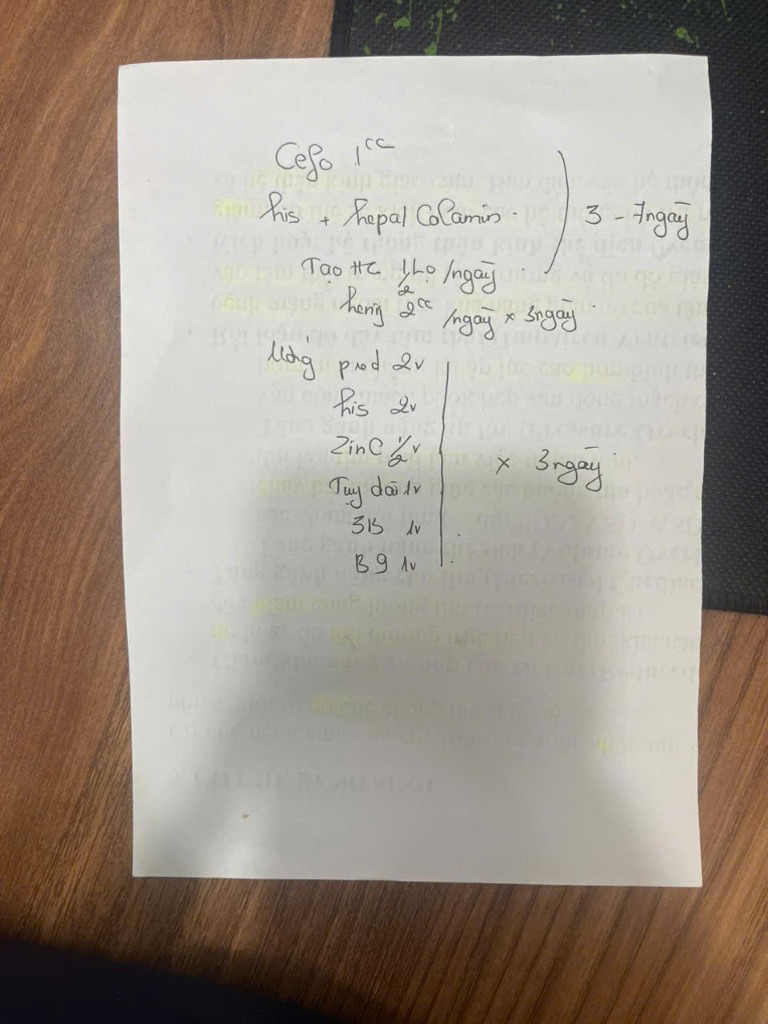 Cefo 1cc
his + hepal Colamin. 3 - 7ngày
Tạo HC 1/2 Lọ /ngày
2cc /ngày × 3ngày
Uống pred 2v
his 2v
ZinC 1/2 v
Tuỵ dài 1v × 3ngày
3B 1v
B9 1v